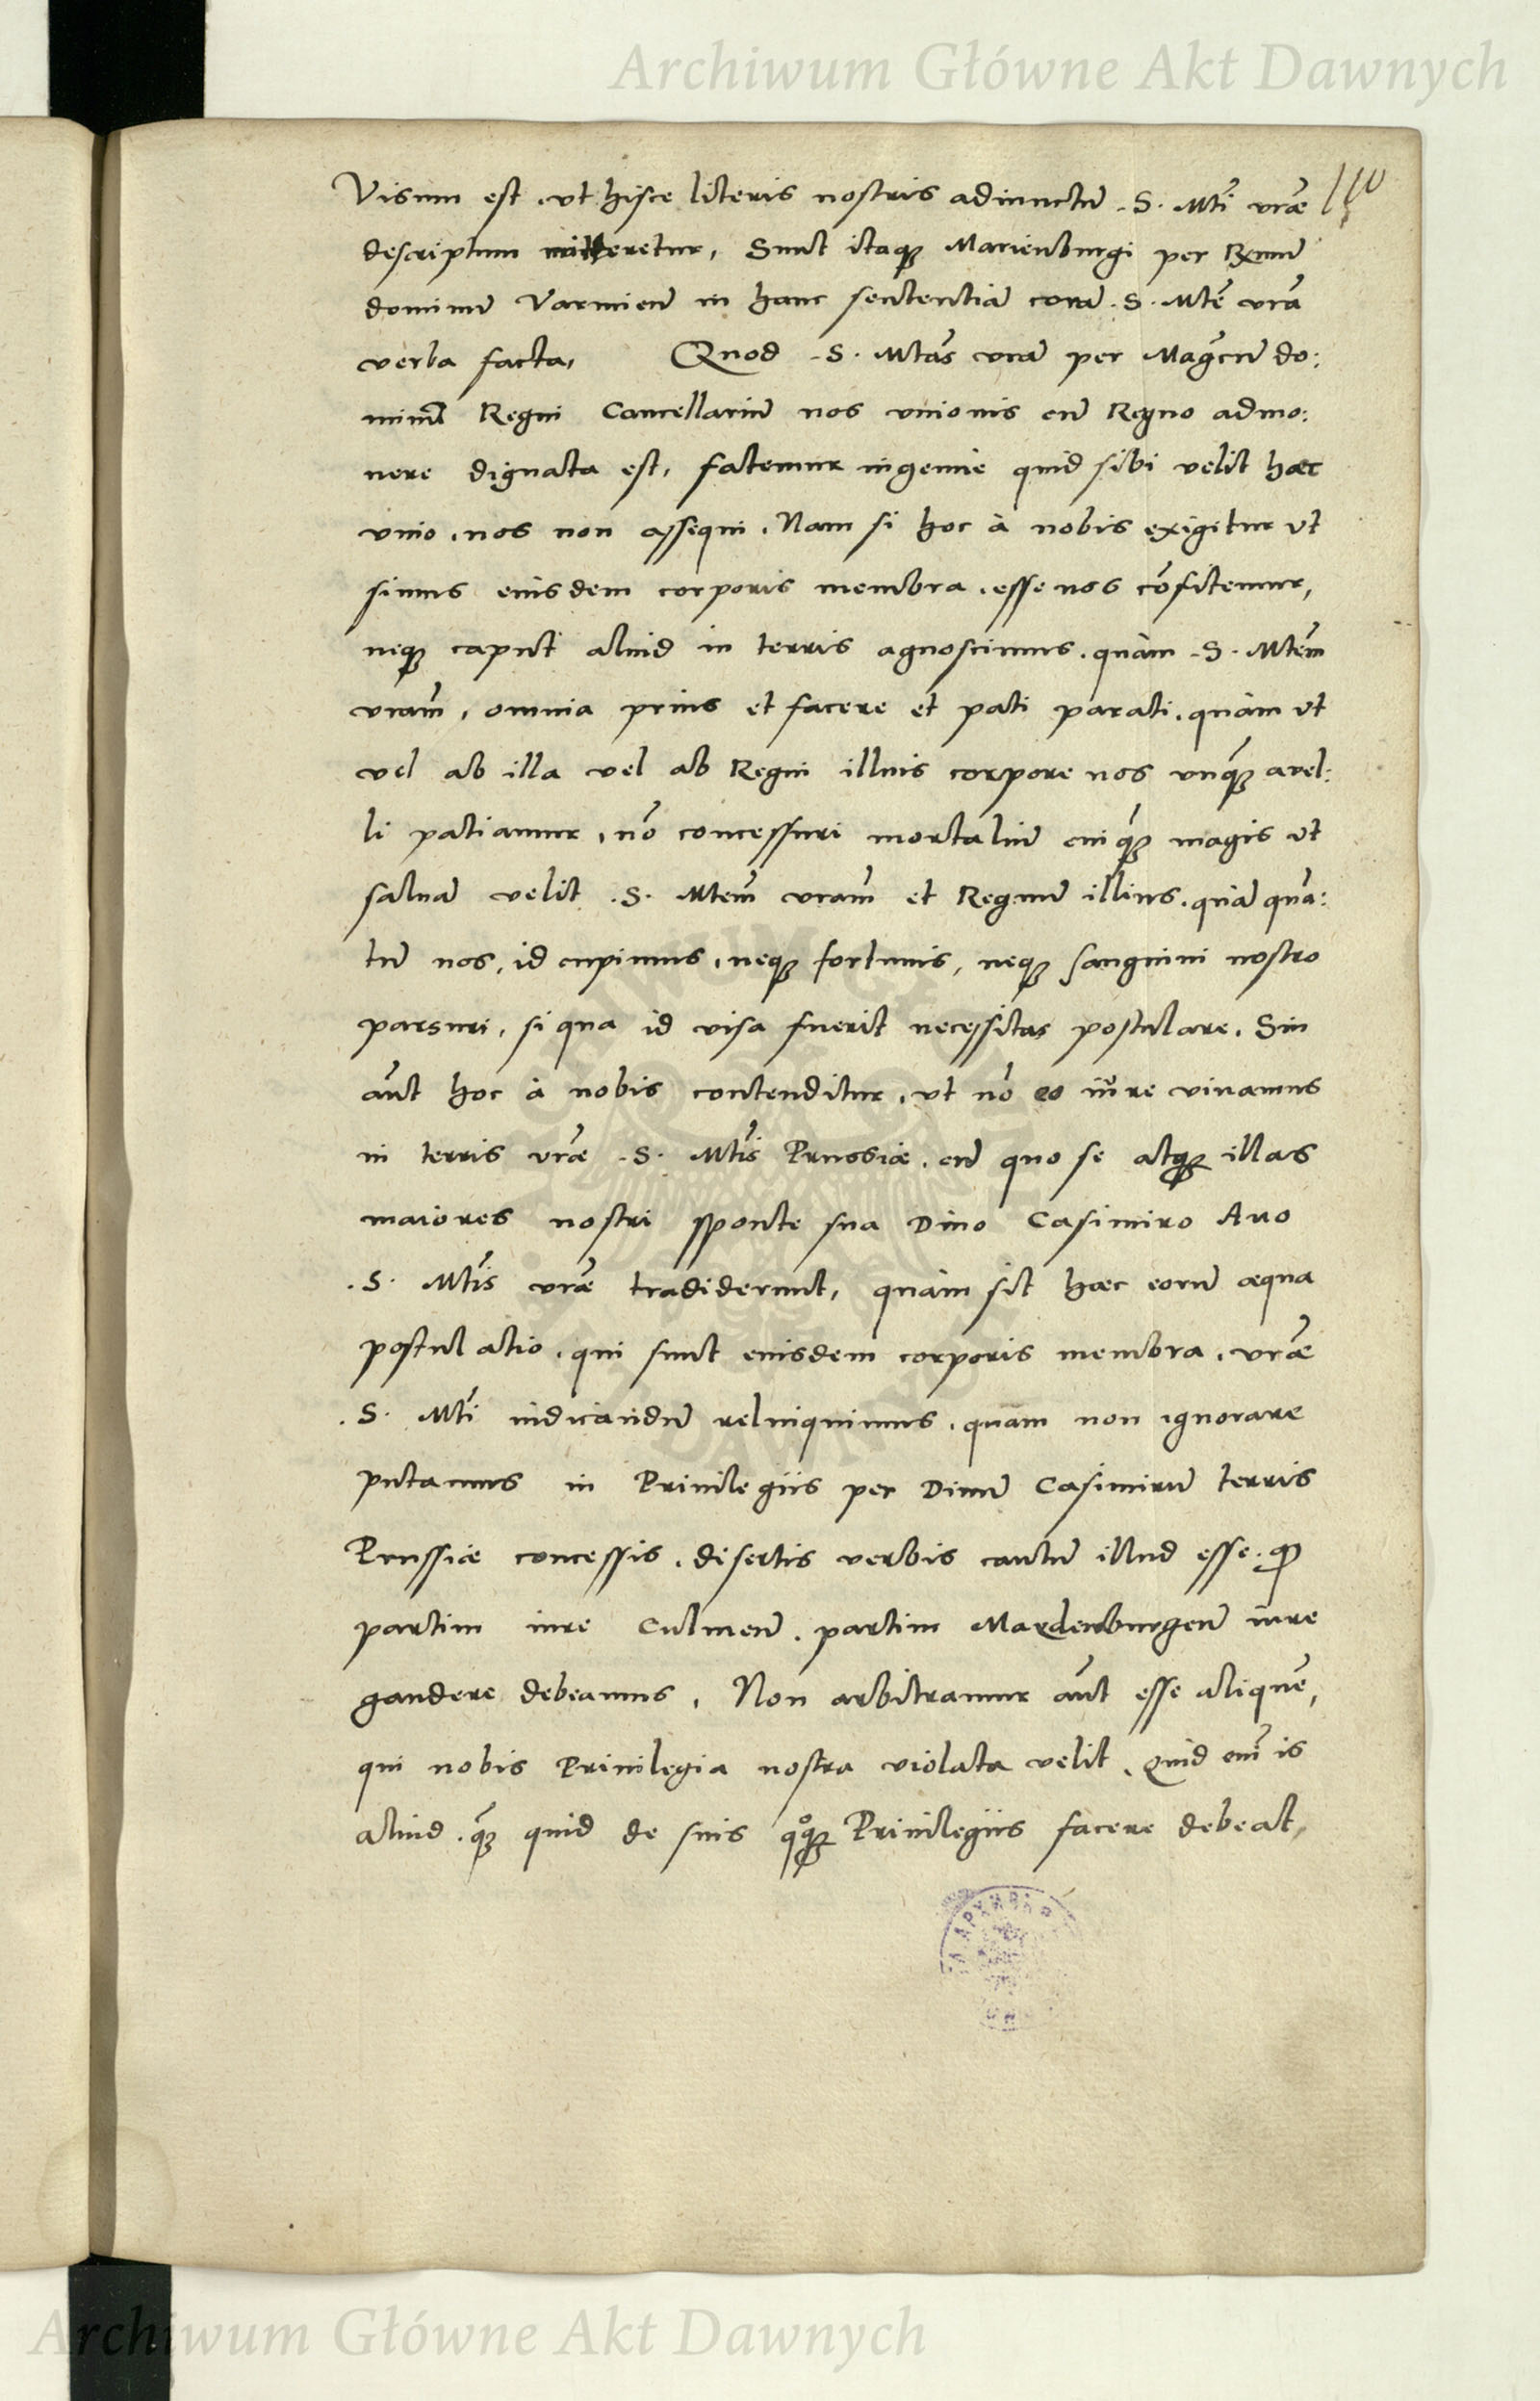 Archiwum Główne Akt Dawnych
110
Visum est, vt hisce literis nostris adiunctũ .S. Mti vrae
descriptum mitteretur, Sunt itaq; Marienburgi per Rxmũ
dominũ Varmieñ in hanc sententiã corã .S. Mtẽ vrã
verba facta, Quod .S. Mtas vrã per Magcũ do:
minũ Regni Cancellariũ nos vnionis cũ Regno admo:
nere dignata est, fatemur ingenue quid sibi velit haec
vnio, nos non assequi. Nam si hoc à nobis exigitur vt
simus eiusdem corporis membra, esse nos cõfitemur,
neq; caput aliud in terris agnoscimus, quàm .S. Mtem
vram, omnia prius et facere et pati parati, quàm vt
vel ab illa vel ab Regni illius corpore nos vnq̃; avel:
li patiamur, nõ concessuri mortaliũ cuiq̃; magis vt
saluã velit .S. Mtem vram et Regnũ illius, quã quã:
tũ nos, id cupimus, neq; fortunis, neq; sanguini nostro
parsuri, si qua id visa fuerit necessitas postulare. Sin
aũt hoc à nobis contenditur, vt nõ eo iure viuamus
in terris vrae .S. Mtis Prussiae, cũ quo se atq; illas
maiores nostri sponte sua Diuo Casimiro Auo
.S. Mtis vrae tradiderunt, quàm sit haec eorũ aequa
postulatio, qui sunt eiusdem corporis membra, vrae
.S. Mti iudicandũ relinquimus, quam non ignorare
putamus in Priuilegiis per Diuũ Casimirũ terris
Prussiae concessis, disertis verbis cautũ illud esse, q̃
partim iure Culmeñ, partim Mardenburgeñ iure
gaudere debeamus. Non arbitramur aũt esse aliquẽ,
qui nobis Priuilegia nostra violata velit. Quid em̃ is
aliud, q̃; quid de suis qoq; Priuilegiis facere debeat,
Archiwum Główne Akt Dawnych